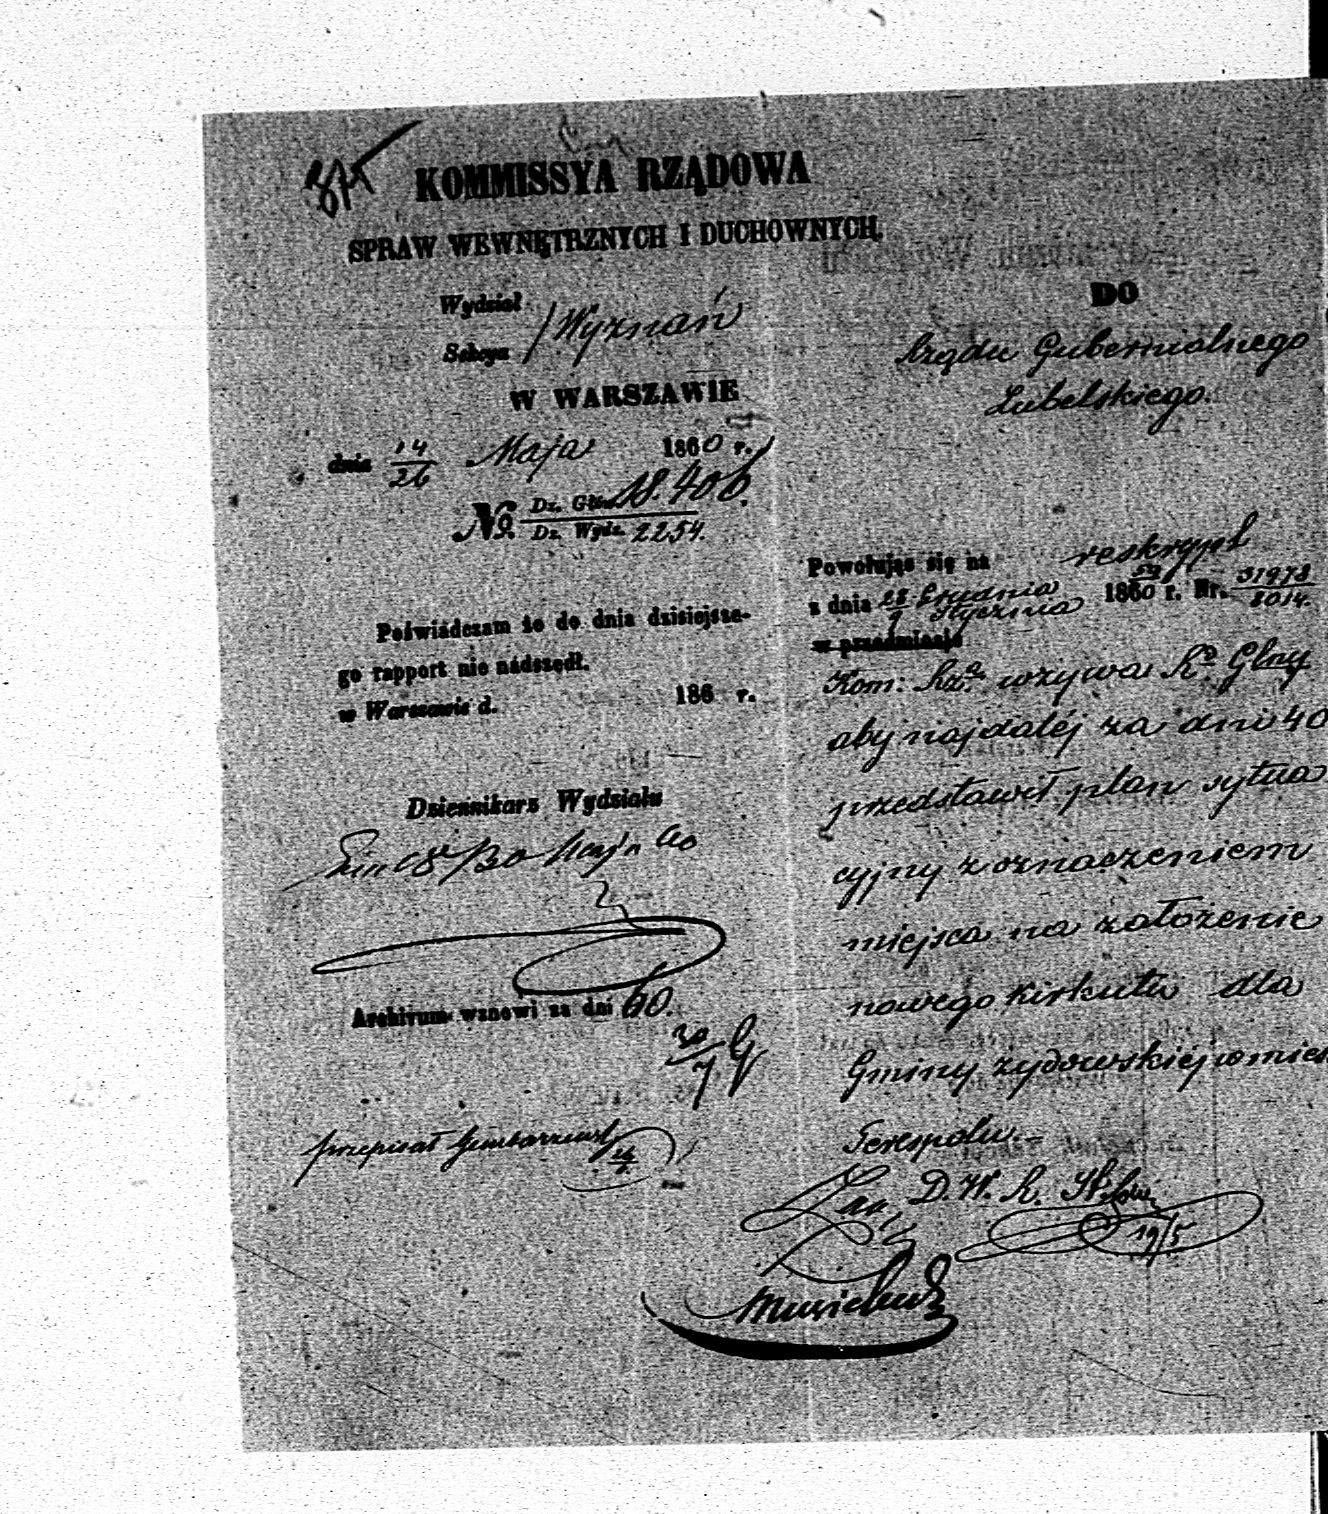 KOMMISSYA RZĄDOWA
SPRAW WEWNĘTRZNYCH I DUCHOWNYCH.
Wydział
Sekcya
Wyznań
W WARSZAWIE
dnia 14/26 Maja 1860 r.
No. Dz. Głów. 18.406.
Dz. Wydz. 2254.
Poświadczam że do dnia dzisiejsze-
go rapport nie nadszedł.
w Warszawie d. 186 r.
Dziennikarz Wydziału
Archivum wznowi za dni 60.
30/7
przepisał
DO
Rządu Gubernialnego
Lubelskiego.
Powołując się na reskrypt
z dnia 28 Grudnia / 9 Stycznia 1859/60 r. Nr. 31978/8014.
w przedmiocie
Kom: Rz.a wzywa R.d Glny
aby najdaléj za dni 40
przedstawił plan sytua
cyjny z oznaczeniem
miejsca na założenie
nowego kirkutu dla
Gminy żydowskiéj w mieś
Terespolu.
D. W. R. St.
19/5